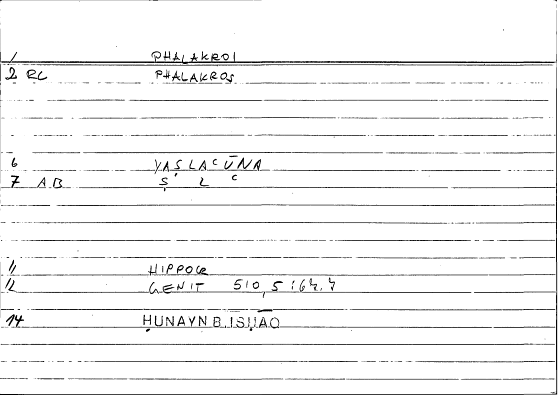 1 PHALAKROI
2 RC PHALAKROS
6 YAṢLAʿŪNA
7 AB Ṣ L ʿ
11 HIPPOCR
12 GENIT 510,5
14 ḤUNAYN B. ISḤĀQ